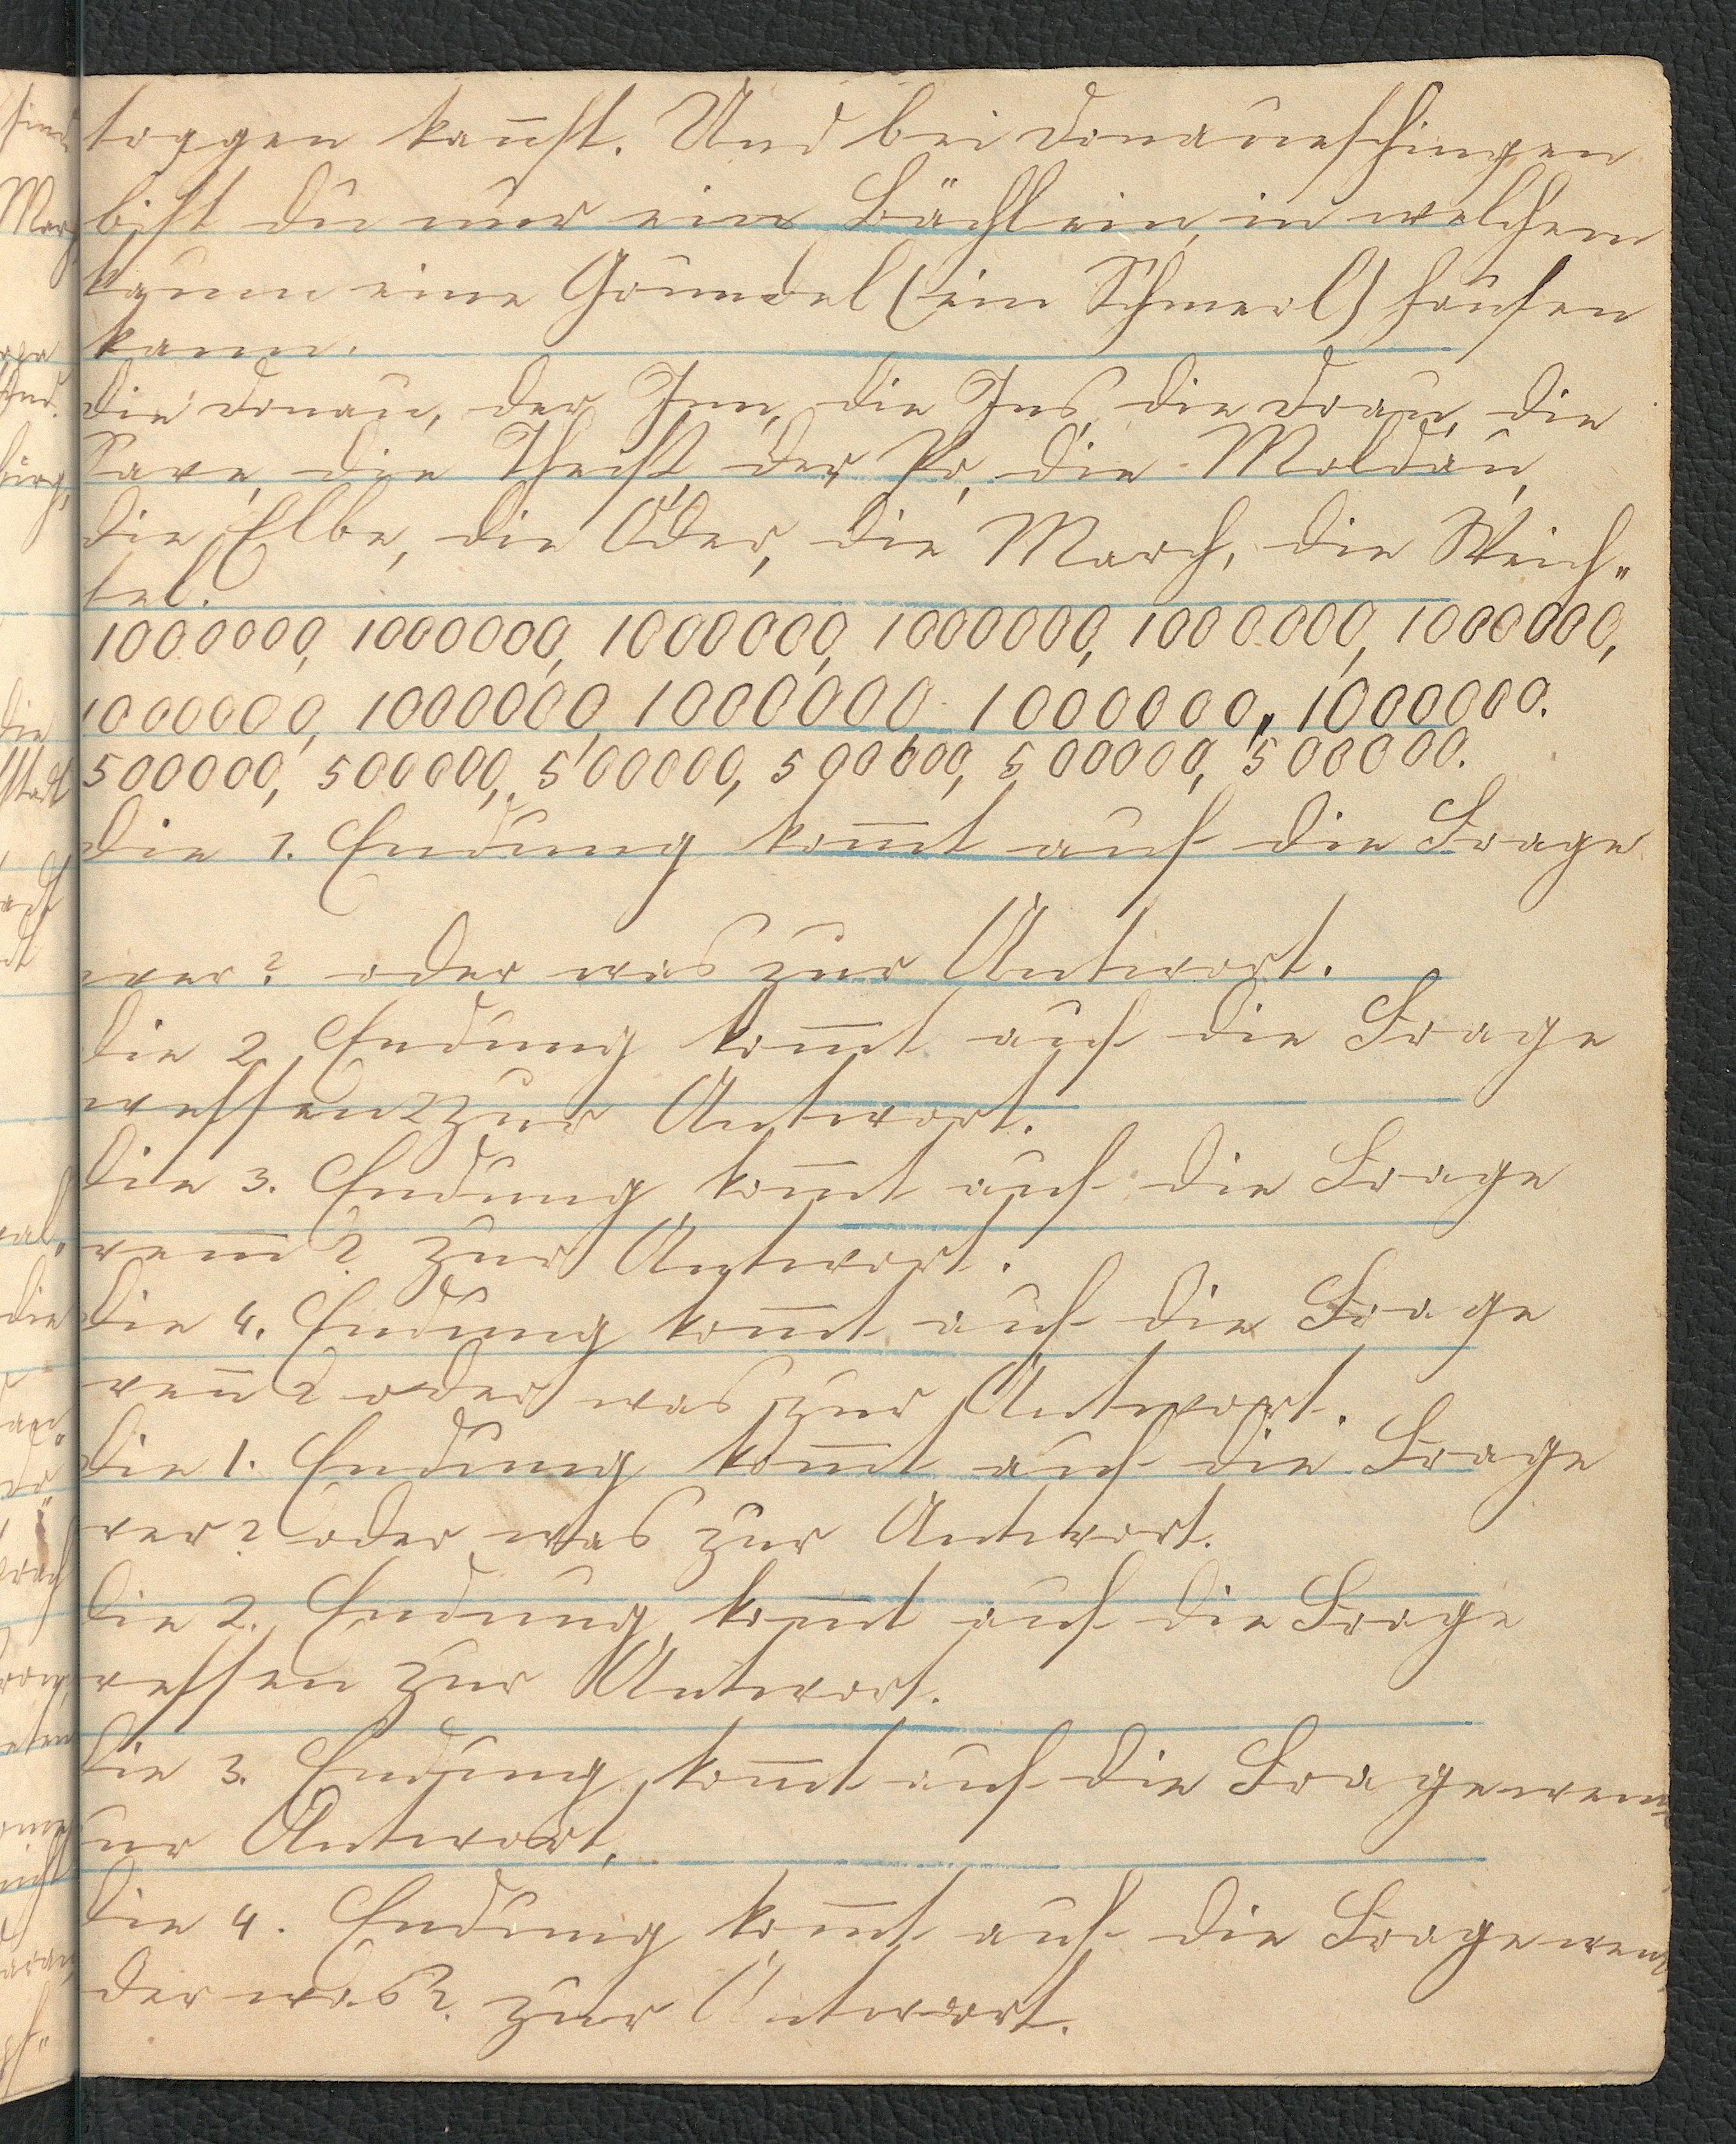 toggen kannst. Und bei Donaueschingen
bist du nur ein Bächlein, in welchem
kaum eine Grundel (ein Schmerl) hausen
kann.
Die Donau, der Inn, die Ens, die Drau, die
Save, die Theiß, der Po, die Moldau,
die Elbe, die Oder, die March, die Weich„
sel.
1000000, 1000000, 1000000, 1000000, 1000000, 1000000,
1000000, 1000000, 1000000 1000000, 1000000.
500000, 500000, 500000, 500000, 500000, 500000.
Die 1. Endung kom̅t auf die Frage
wer? oder was zur Antwort.
Die 2 Endung kom̅t auf die Frage
wessen? zur Antwort.
Die 3. Endung kom̅t auf die Frage
wem? zur Antwort.
Die 4. Endung kom̅t auf die Frage
wen̅? oder was zur Antwort.
Die 1. Endung kom̅t auf die Frage
wer? oder was zur Antwort.
Die 2. Endung kom̅t auf die Frage
wessen zur Antwort.
Die 3. Endung kom̅t auf die Frage wem
zur Antwort.
Die 4. Endung kom̅t auf die Frage wen
oder was? zur Antwort.